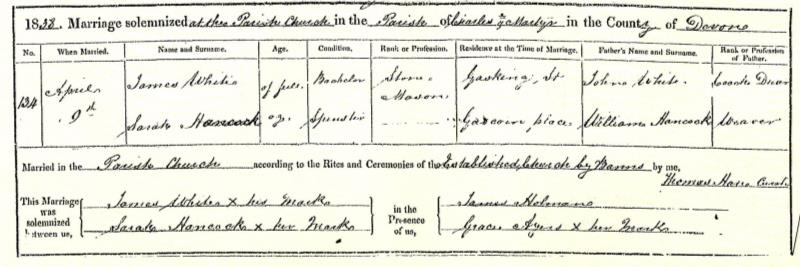 1838. Marriage solemnized at the Parish Church in the Parish of Charles ye Martyr in the County of Devon
No. When Married. Name and Surname. Age. Condition. Rank or Profession. Residence at the Time of Marriage. Father's Name and Surname. Rank or Profession of Father.
134 April 9th James White of full Bachelor Stone Mason Gasking St John White
Sarah Hancock age Spinster Gascoin place William Hancock Weaver
Married in the Parish Church according to the Rites and Ceremonies of the Established Church by Banns by me,
Thomas Hare Curate
This Marriage was solemnized between us, James White x his Mark in the Presence of us, James Holman
Sarah Hancock x her Mark Grace Ayers x her Mark